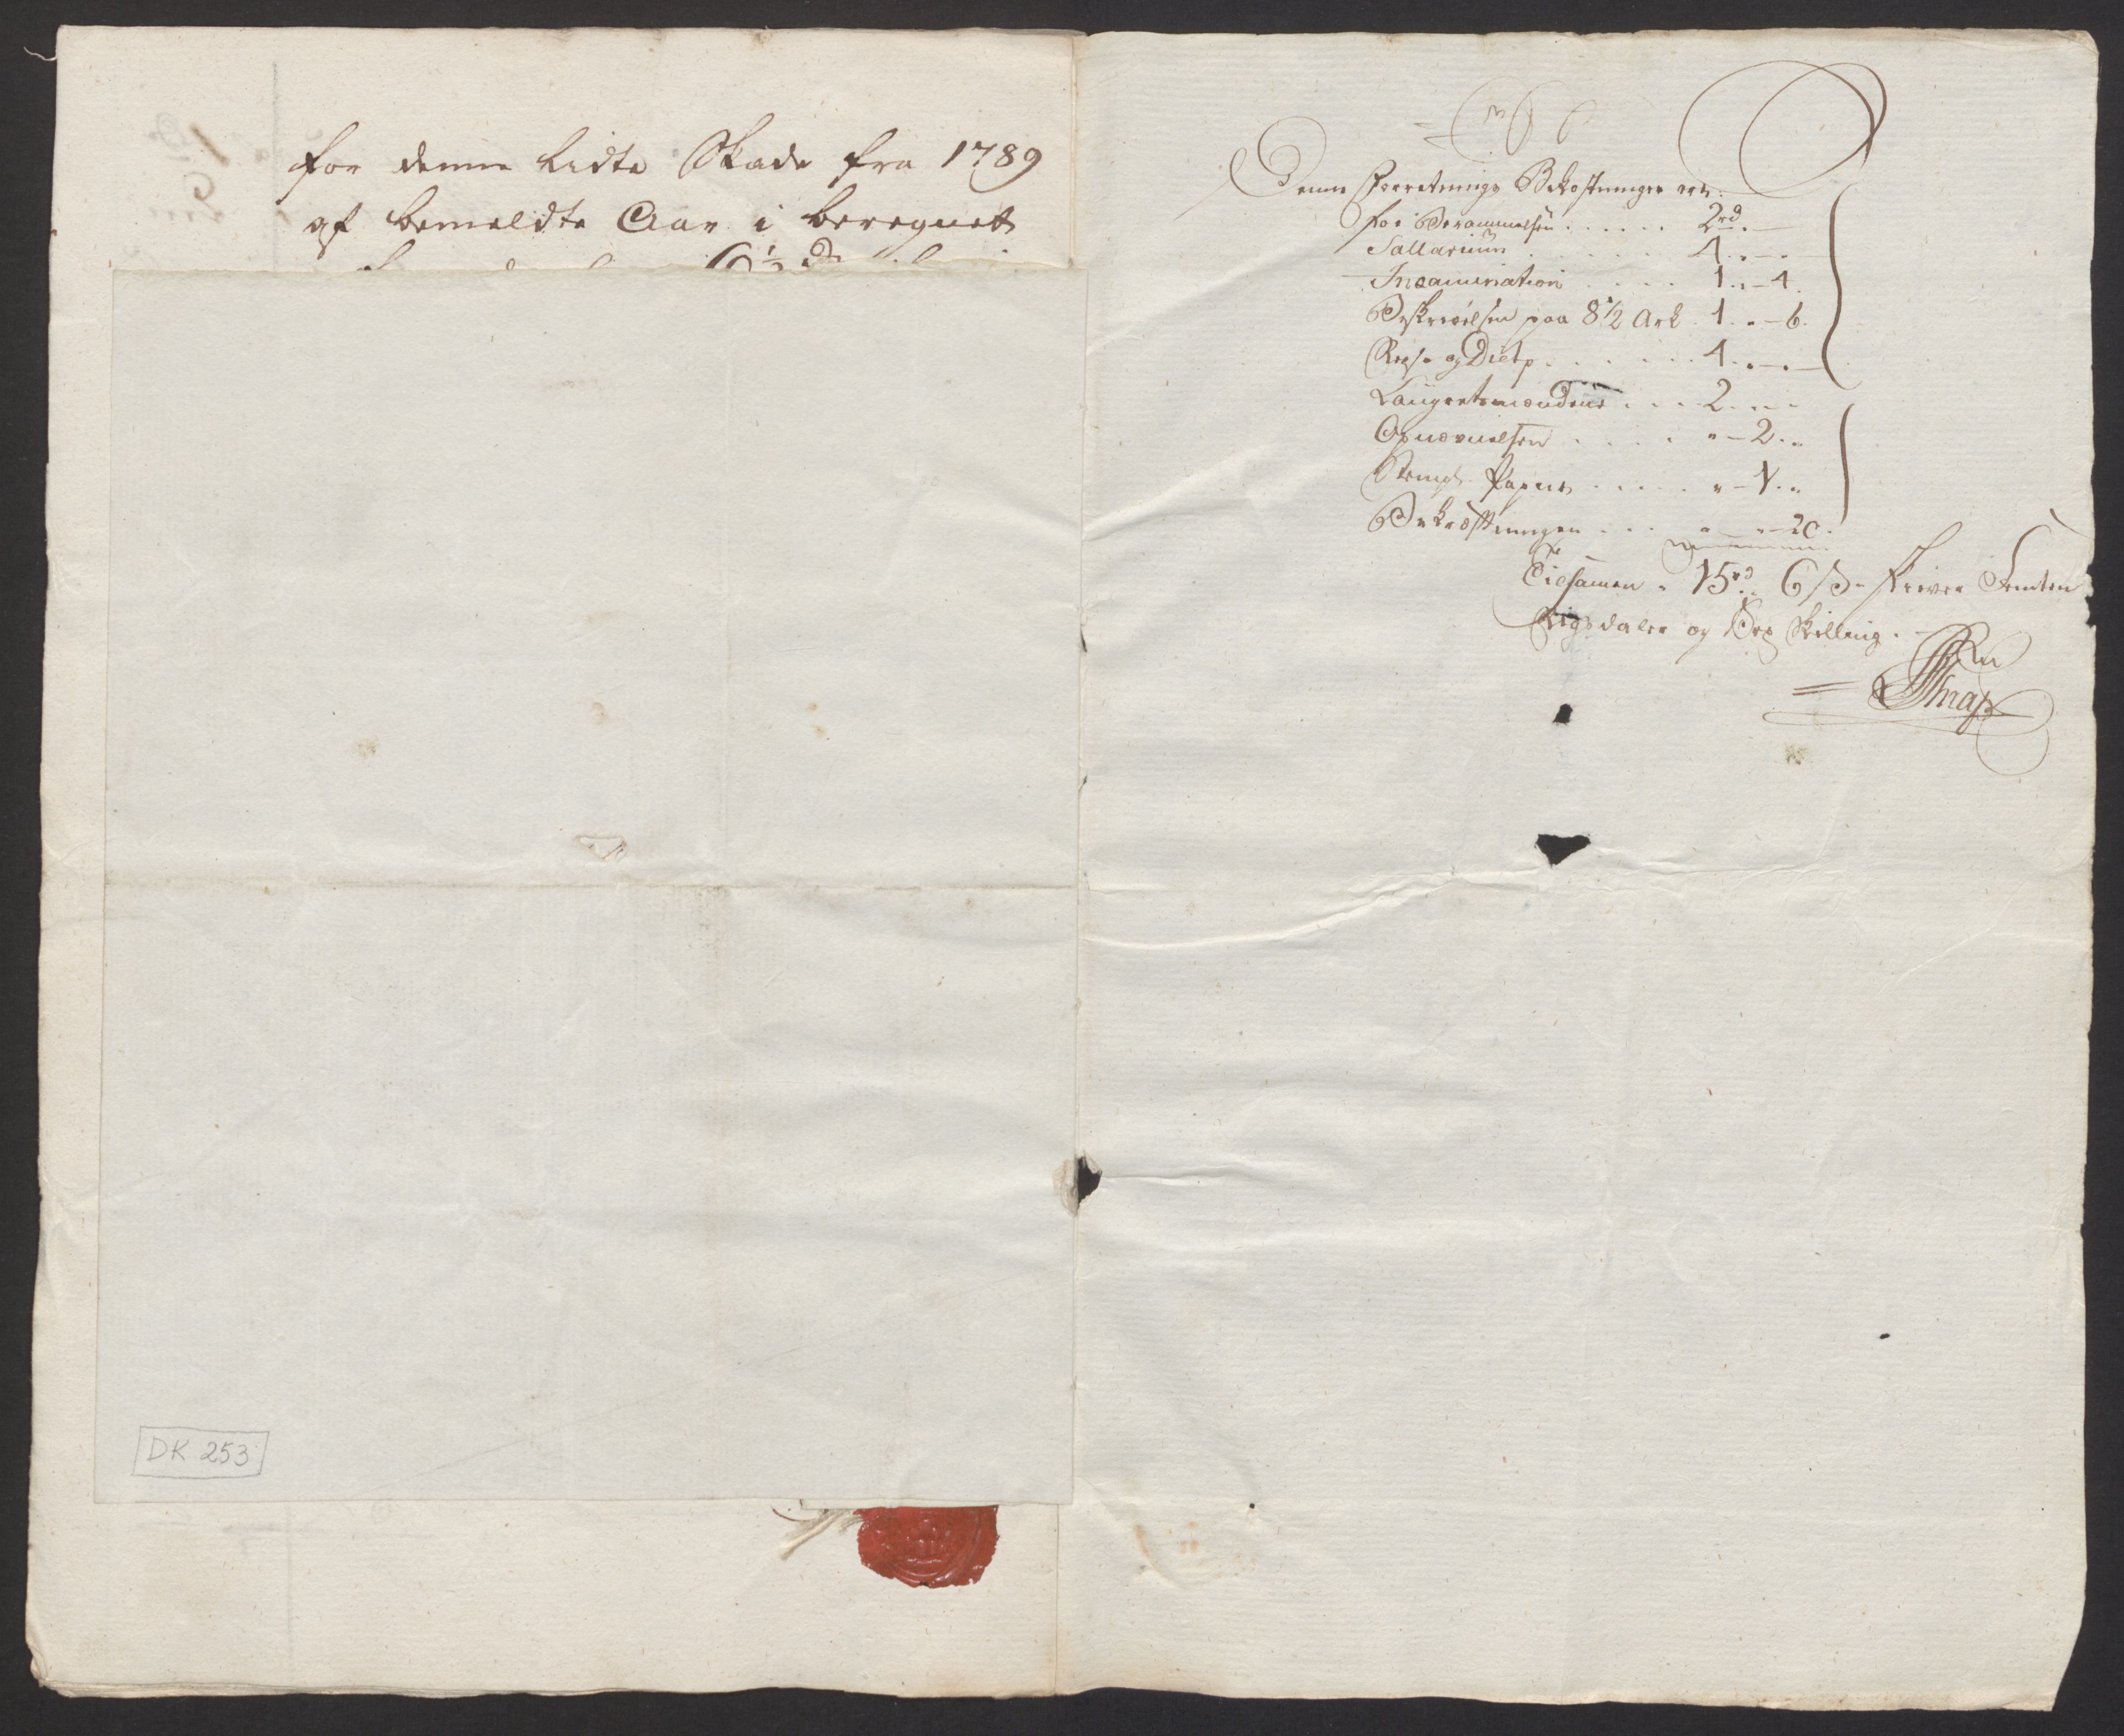 for denne lidte Skade fra 1789
af bemeldte Aar i beregnet
6½
DK 253
Denne Forretnings Bekostninger er:
for Berammelsen . . . . . . 2rd. —
Sallarium . . . . . . 4. „ — „
Incamination . . . . 1. „ — 4.
Beskrivelsen paa 8½ Ark . 1. „ — 6.
Reise og Diet . . . . . . 4. „ — „
Laugretsmændene . . . 2. „ — „
Opnævnelsen . . . . „ — 2. „
Stempl. Papiir . . . . . „ — 1. „
Bekræftningen . . . „ — „ — 20.
Tilsamen . 15rd „ 6 s - skriver Femten
Rigsdaler og Sex Skilling .